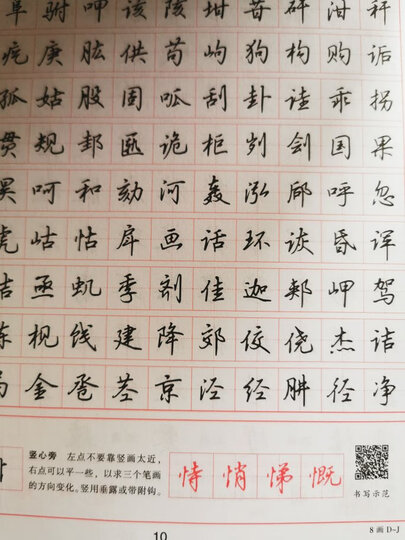 阜 驸 呷 该 陔 坩 苷 矸 泔 秆
疙 庚 肱 供 苟 岣 狗 枸 购 诟
孤 姑 股 固 呱 刮 卦 诖 乖 拐
贯 规 邽 匦 诡 柜 刿 刽 国 果
昊 呵 和 劾 河 轰 泓 郈 呼 忽
虎 岵 怙 戽 画 话 环 诙 昏 诨
亟 虮 季 剂 佳 迦 郏 岬 驾
枧 饯 建 降 郊 佼 侥 杰 诘
金 卺 茎 京 泾 经 肼 径 净
竖心旁 左点不要靠竖画太近，
右点可以平一些，以求三个笔画
的方向变化。竖用垂露或带附钩。
恃 悄 悌 慨
书写示范
8画 D-J
10